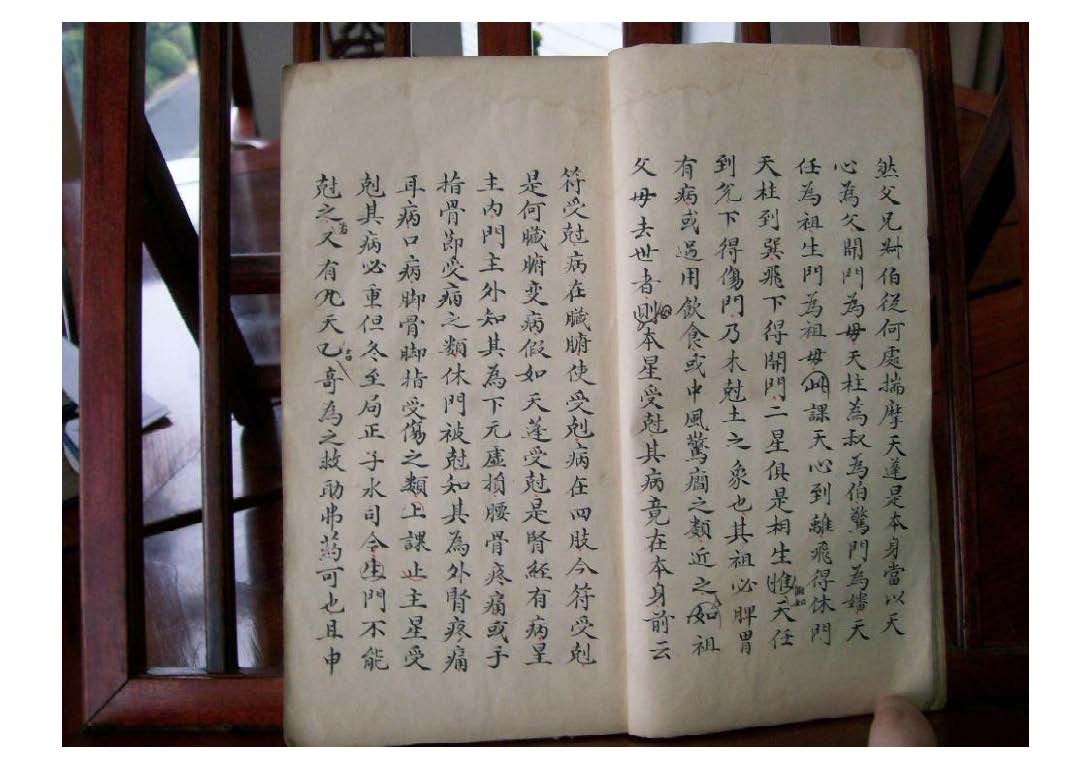 然父兄尗伯從何處揣摩天蓬是本身當以天
心為父開門為母天柱為叔為伯驚門為嬸天
任為祖生門為祖母此課天心到離飛得休門
天柱到巽飛下得開門二星俱是相生惟天任
到兌下得傷門乃木尅土之象也其祖必脾胃
有病或過用飲食或中風驚癎之類近之如祖
父母去世者則本星受尅其病竟在本身前云
符受尅病在臟腑使受尅病在四肢今符受尅
是何臟腑变病假如天蓬受尅是腎經有病星
主內門主外知其為下元虛損腰骨疼痛或手
指骨節受病之類休門被尅知其為外腎疼痛
耳病口病脚骨脚指受傷之類上課止主星受
尅其病必重但冬至局正子水司令生門不能
尅之又有九天乙奇為之救助弗葯可也且申